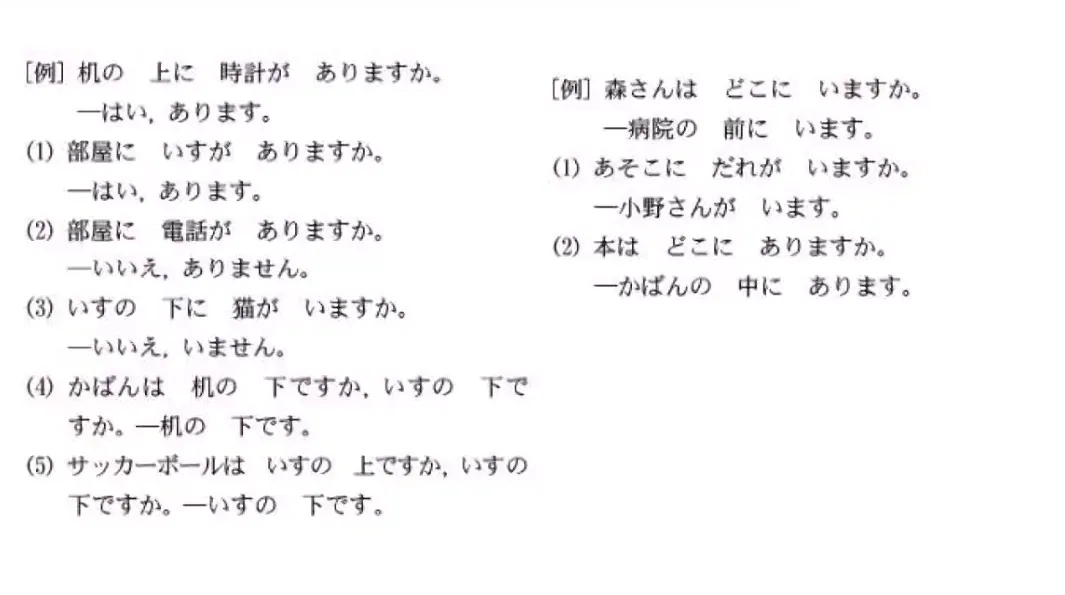 [例] 机の　上に　時計が　ありますか。
—はい, あります。
(1) 部屋に　いすが　ありますか。
—はい, あります。
(2) 部屋に　電話が　ありますか。
—いいえ, ありません。
(3) いすの　下に　猫が　いますか。
—いいえ, いません。
(4) かばんは　机の　下ですか, いすの　下で
すか。—机の　下です。
(5) サッカーボールは　いすの　上ですか, いすの
下ですか。—いすの　下です。
[例] 森さんは　どこに　いますか。
—病院の　前に　います。
(1) あそこに　だれが　いますか。
—小野さんが　います。
(2) 本は　どこに　ありますか。
—かばんの　中に　あります。